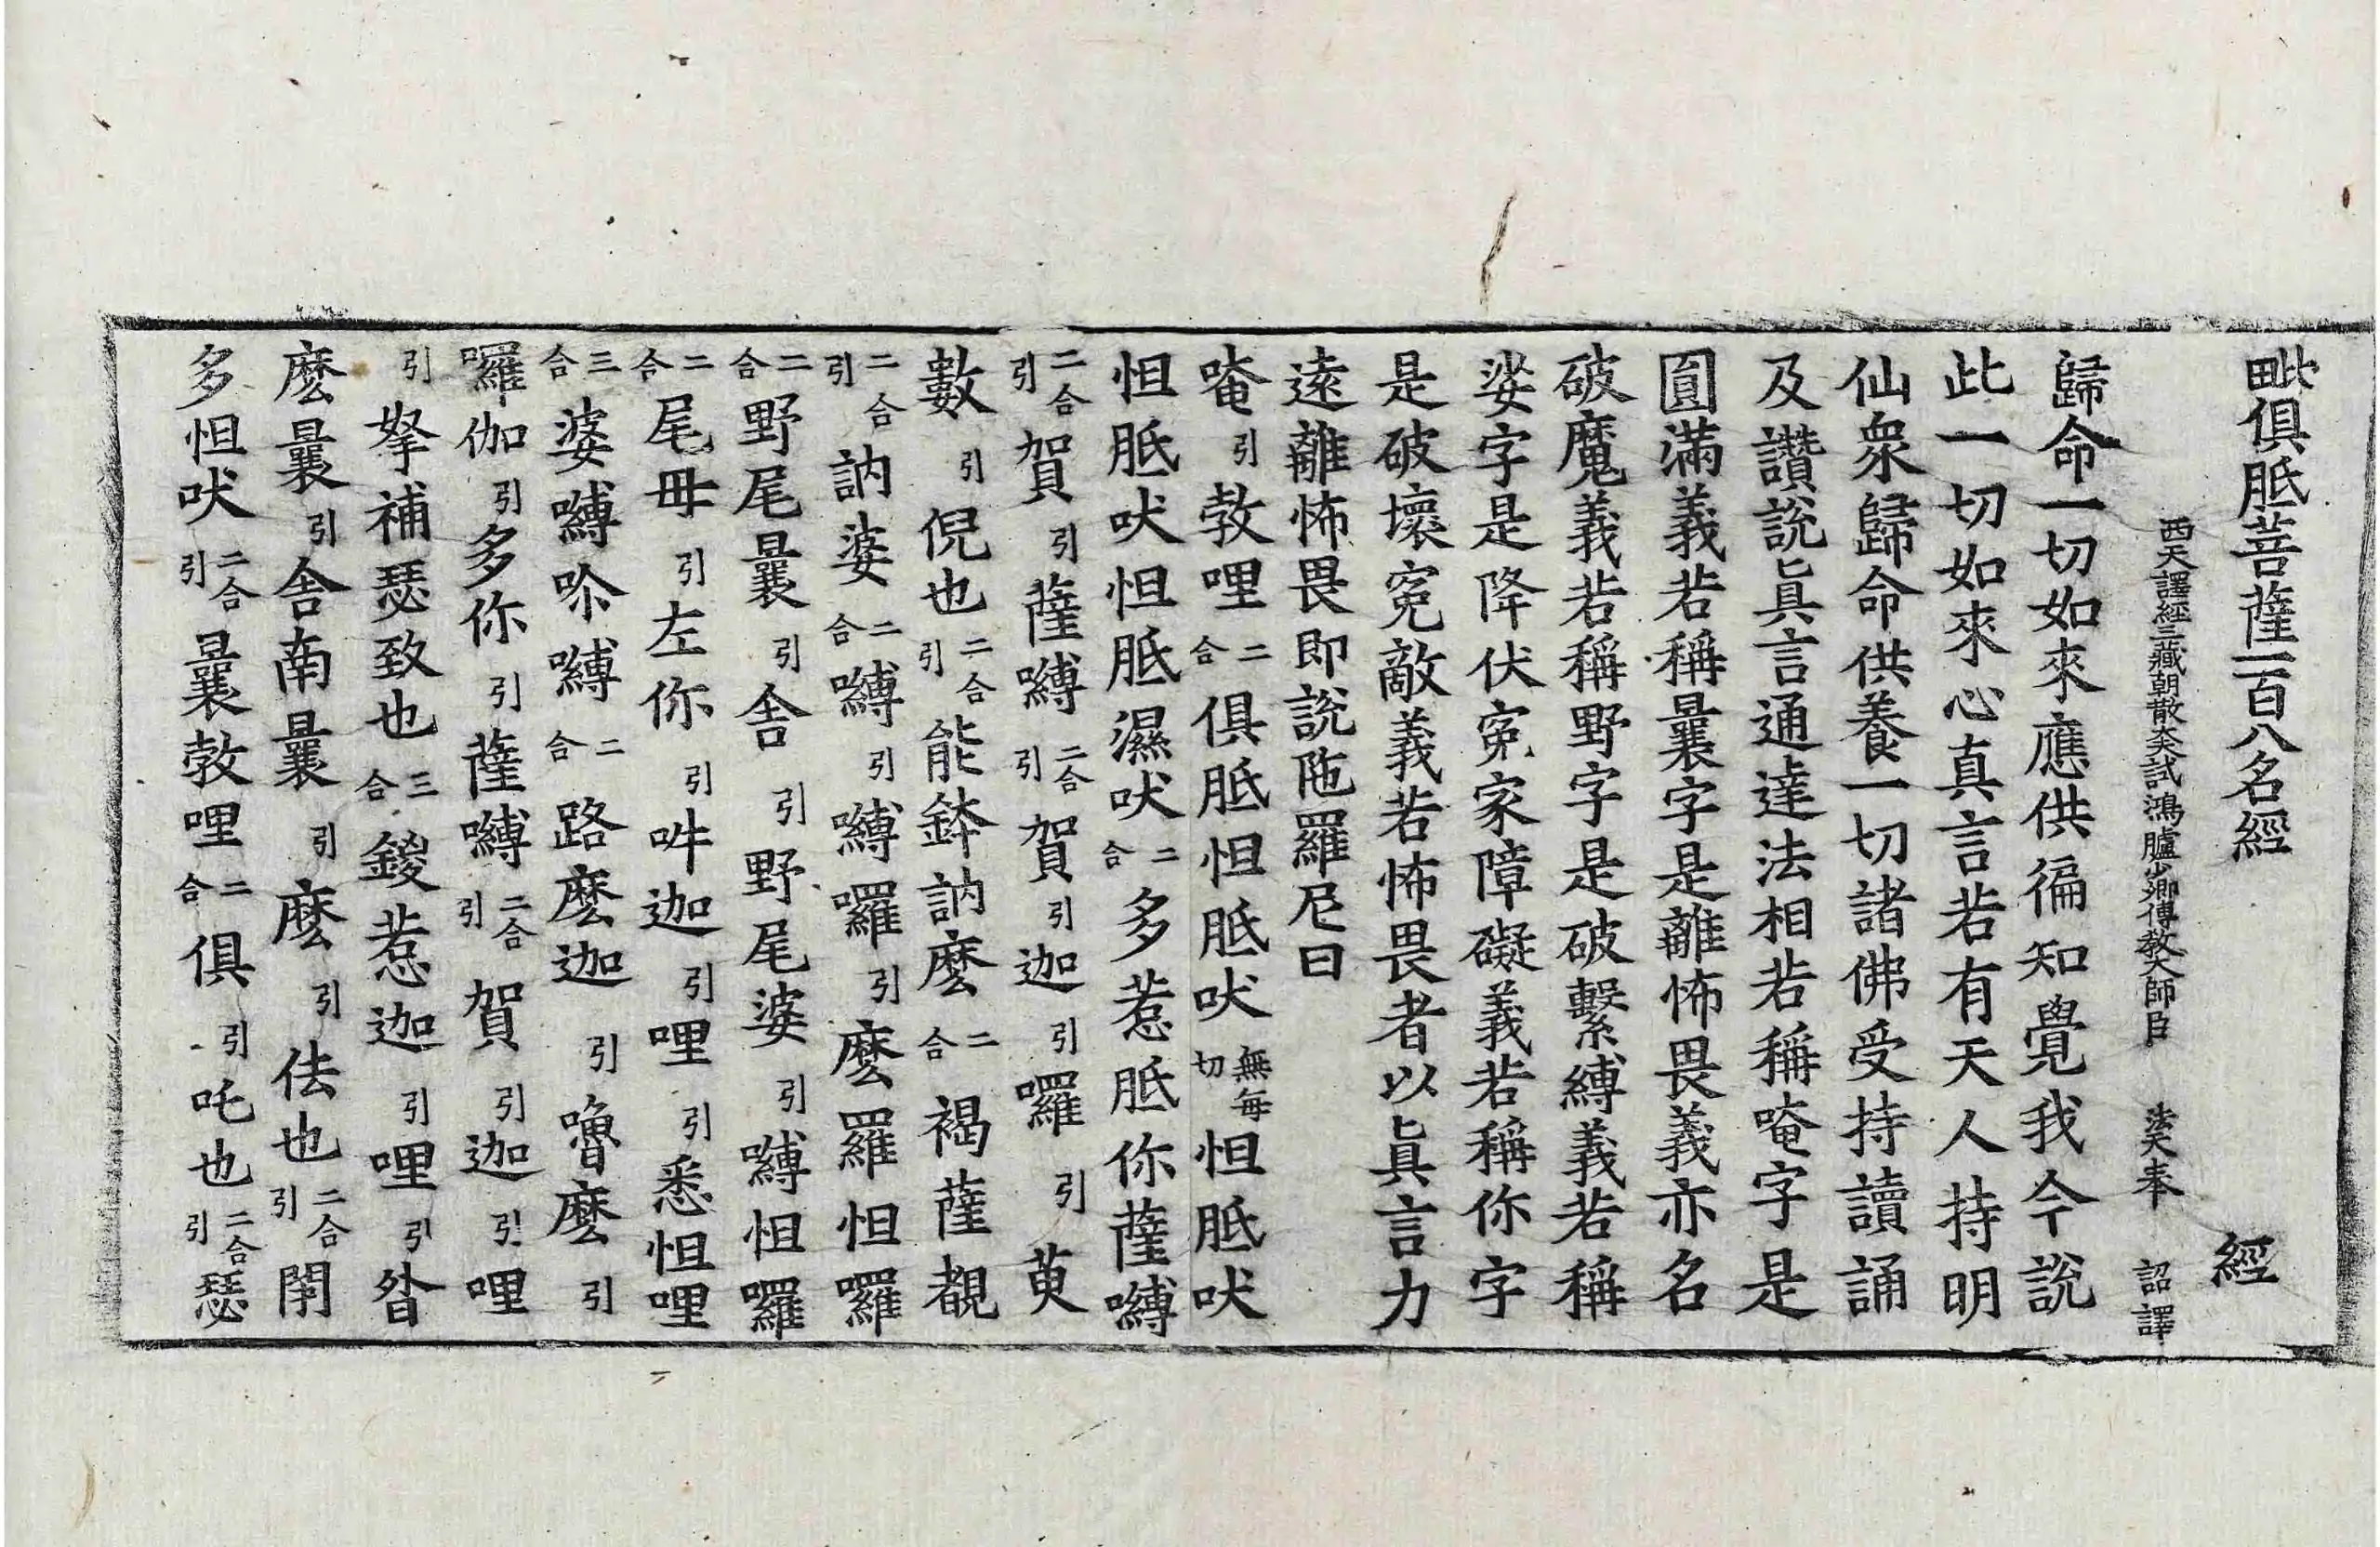 毗俱胝菩薩一百八名經 經
西天譯經三藏朝散大夫試鴻臚少卿傳教大師臣 法天奉 詔譯
歸命一切如來應供徧知覺我今說
此一切如來心真言若有天人持明
仙衆歸命供養一切諸佛受持讀誦
及讚說眞言通達法相若稱唵字是
圓滿義若稱曩字是離怖畏義亦名
破魔義若稱野字是破繫縛義若稱
娑字是降伏寃家障礙義若稱你字
是破壞寃敵義若怖畏者以眞言力
遠離怖畏即說陁羅尼曰
唵引勃哩二合俱胝怛胝吠無每切怛胝吠
怛胝吠怛胝濕吠二合多惹胝你薩嚩
二合引賀引薩嚩二合引賀引迦引囉引萸
數引倪也二合引能鉢訥麽二合褐薩覩
二合引訥婆二合嚩引嚩囉引麽羅怛囉
二合野尾曩引舍引野尾婆引嚩怛囉
二合尾毋引左你引吽迦引哩引悉怛哩
三合婆嚩吤嚩二合路麽迦引嚕麽引
囉伽引多你引薩嚩二合引賀引迦引哩
引拏補瑟致也三合鍐惹迦引哩引昝
麽曩引舍南曩引麽引佉也二合引閉
多怛吠二合引曩勃哩二合俱引吒也二合引瑟